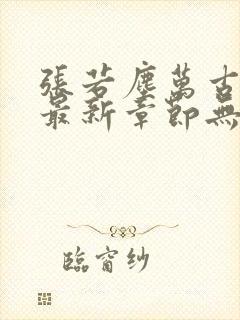 張若塵萬古
最新章節無
臨窗纱